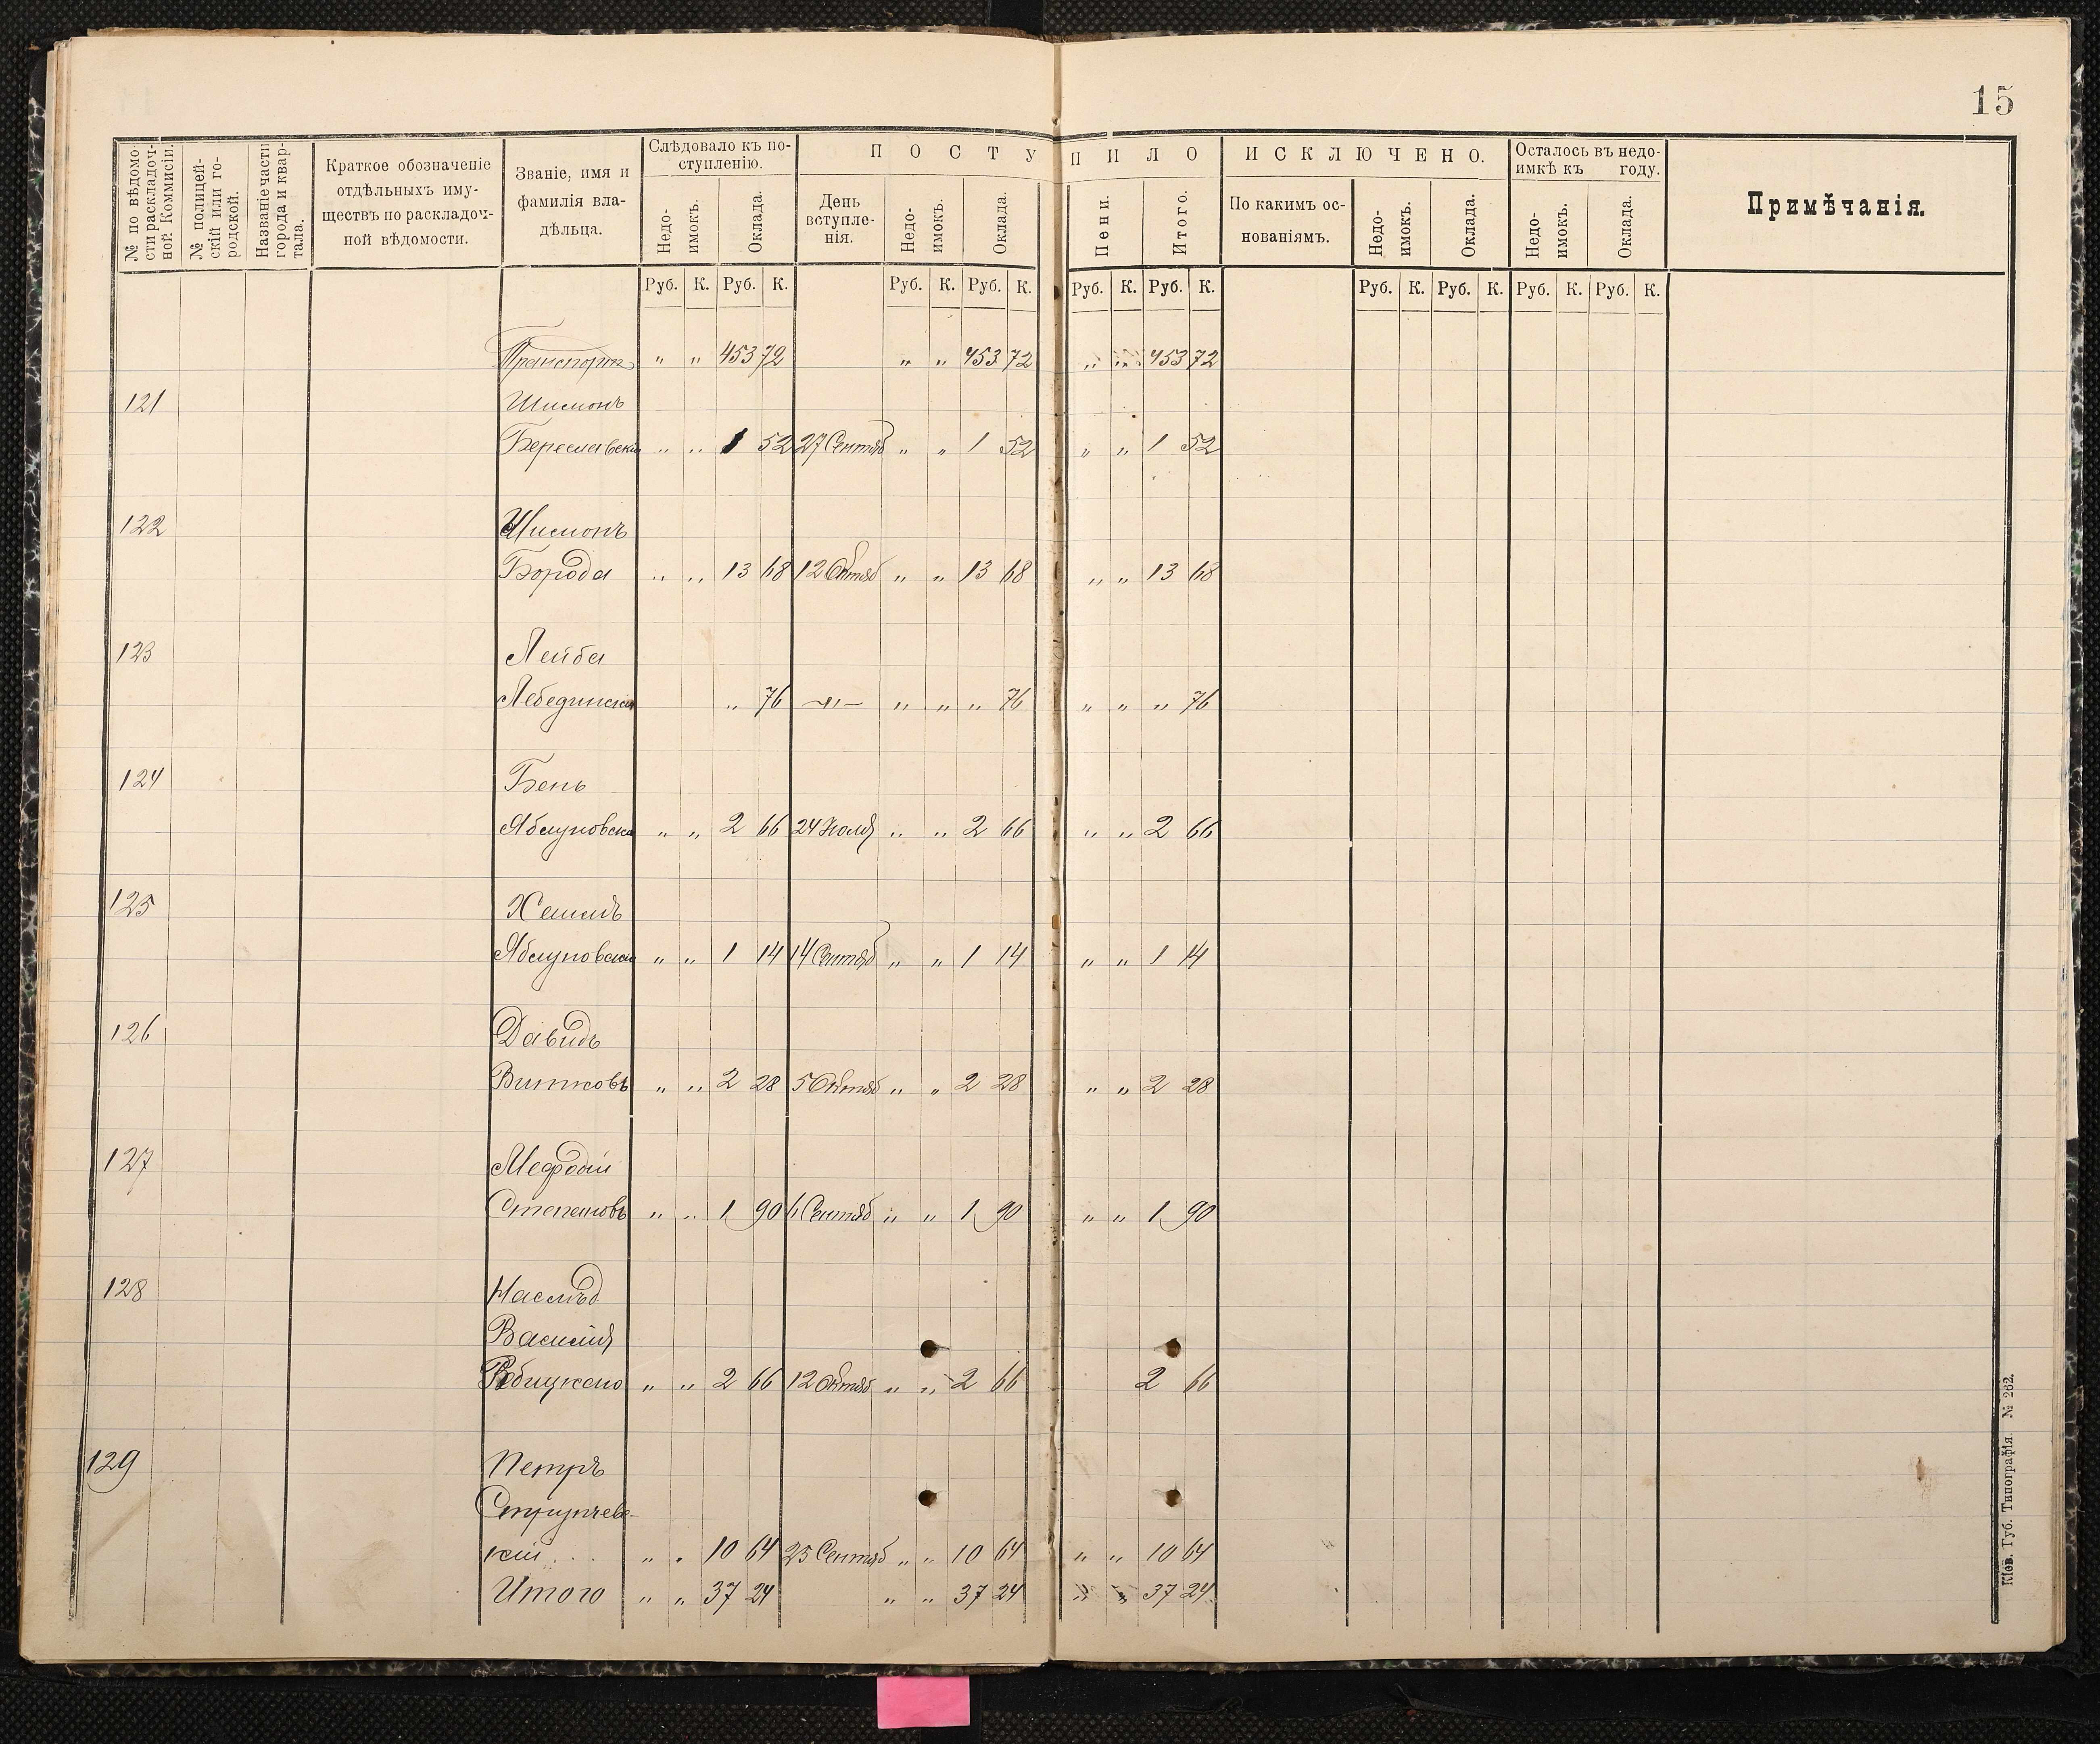 15
№ по вѣдомо-
сти раскладоч-
ной Коммисіи.
№ полицей-
скій или го-
родской.
Названіе части
города и квар-
тала.
Краткое обозначеніе
отдѣльныхъ иму-
ществъ по раскладоч-
ной вѣдомости.
Званіе, имя и
фамилія вла-
дѣльца.
Слѣдовало къ по-
ступленію.
Недо-
имокъ.
Оклада.
ПОСТУПИЛО
День
вступле-
нія.
Недо-
имокъ.
Оклада.
Пени.
Итого.
ИСКЛЮЧЕНО.
По какимъ ос-
нованіямъ.
Недо-
имокъ.
Оклада.
Осталось въ недо-
имкѣ къ году.
Недо-
имокъ.
Оклада.
Примѣчанія.
Руб. К. Руб. К. Руб. К. Руб. К. Руб. К. Руб. К. Руб. К. Руб. К. Руб. К. Руб. К.
Транспортъ „ „ 453 72 „ „ 453 72 „ „ 453 72
121 Шимонъ
Береславскій „ „ 1 52 27 Сентяб „ „ 1 52 „ „ 1 52
122 Шимонъ
Борода „ „ 13 68 12 Октяб „ „ 13 68 „ „ 13 68
123 Лейба
Лебединскій „ 76 —„— „ „ „ 76 „ „ „ 76
124 Бень
Яблуновскі „ „ 2 66 24 Ноя „ „ 2 66 „ „ 2 66
125
Яблуновскі „ „ 1 14 14 Сентяб „ „ 1 14 „ „ 1 14
126 Давидъ
Витковъ „ „ 2 28 5 Октяб „ „ 2 28 „ „ 2 28
127 Мефодій
Степановъ „ „ 1 90 6 Сентяб „ „ 1 90 „ „ 1 90
128 Наслѣд
Василія
„ „ 2 66 12 Октяб „ „ 2 66 2 66
129 Петръ
Струтчевс-
кій . . . „ „ 10 64 25 Сентяб „ „ 10 64 „ „ 10 64
Итого „ „ 37 24 „ „ 37 24 „ „ 37 24
Кіев. Губ. Типографія. № 262.